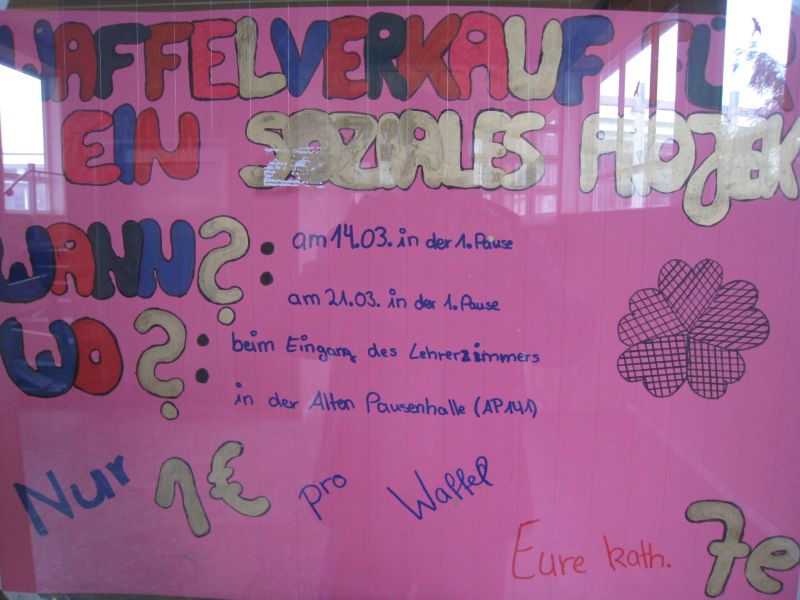 WAFFELVERKAUF FÜR
EIN SOZIALES PROJEK
WANN?: am 14.03. in der 1. Pause
am 21.03. in der 1. Pause
WO?: beim Eingang des Lehrerzimmers
in der Alten Pausenhalle (AP141)
Nur 1€ pro Waffel
Eure kath. 7e